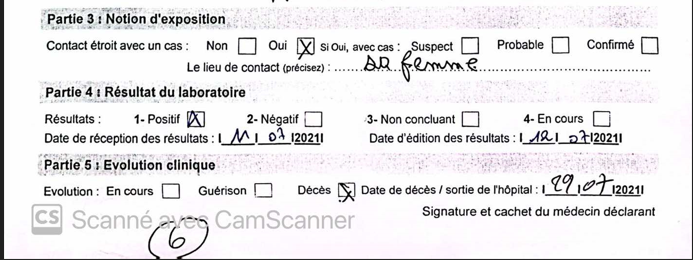 Partie 3 : Notion d'exposition
Contact étroit avec un cas : Non Oui X Si Oui, avec cas : Suspect Probable Confirmé
Le lieu de contact (précisez) : sa femme
Partie 4 : Résultat du laboratoire
Résultats : 1- Positif X 2- Négatif 3- Non concluant 4- En cours
Date de réception des résultats : I 11 I 07 I2021I Date d'édition des résultats : I 12 I 07 I2021I
Partie 5 : Evolution clinique
Evolution : En cours Guérison Décès X Date de décès / sortie de l'hôpital : I 29 I 07 I2021I
Signature et cachet du médecin déclarant
CS Scanné avec CamScanner
6